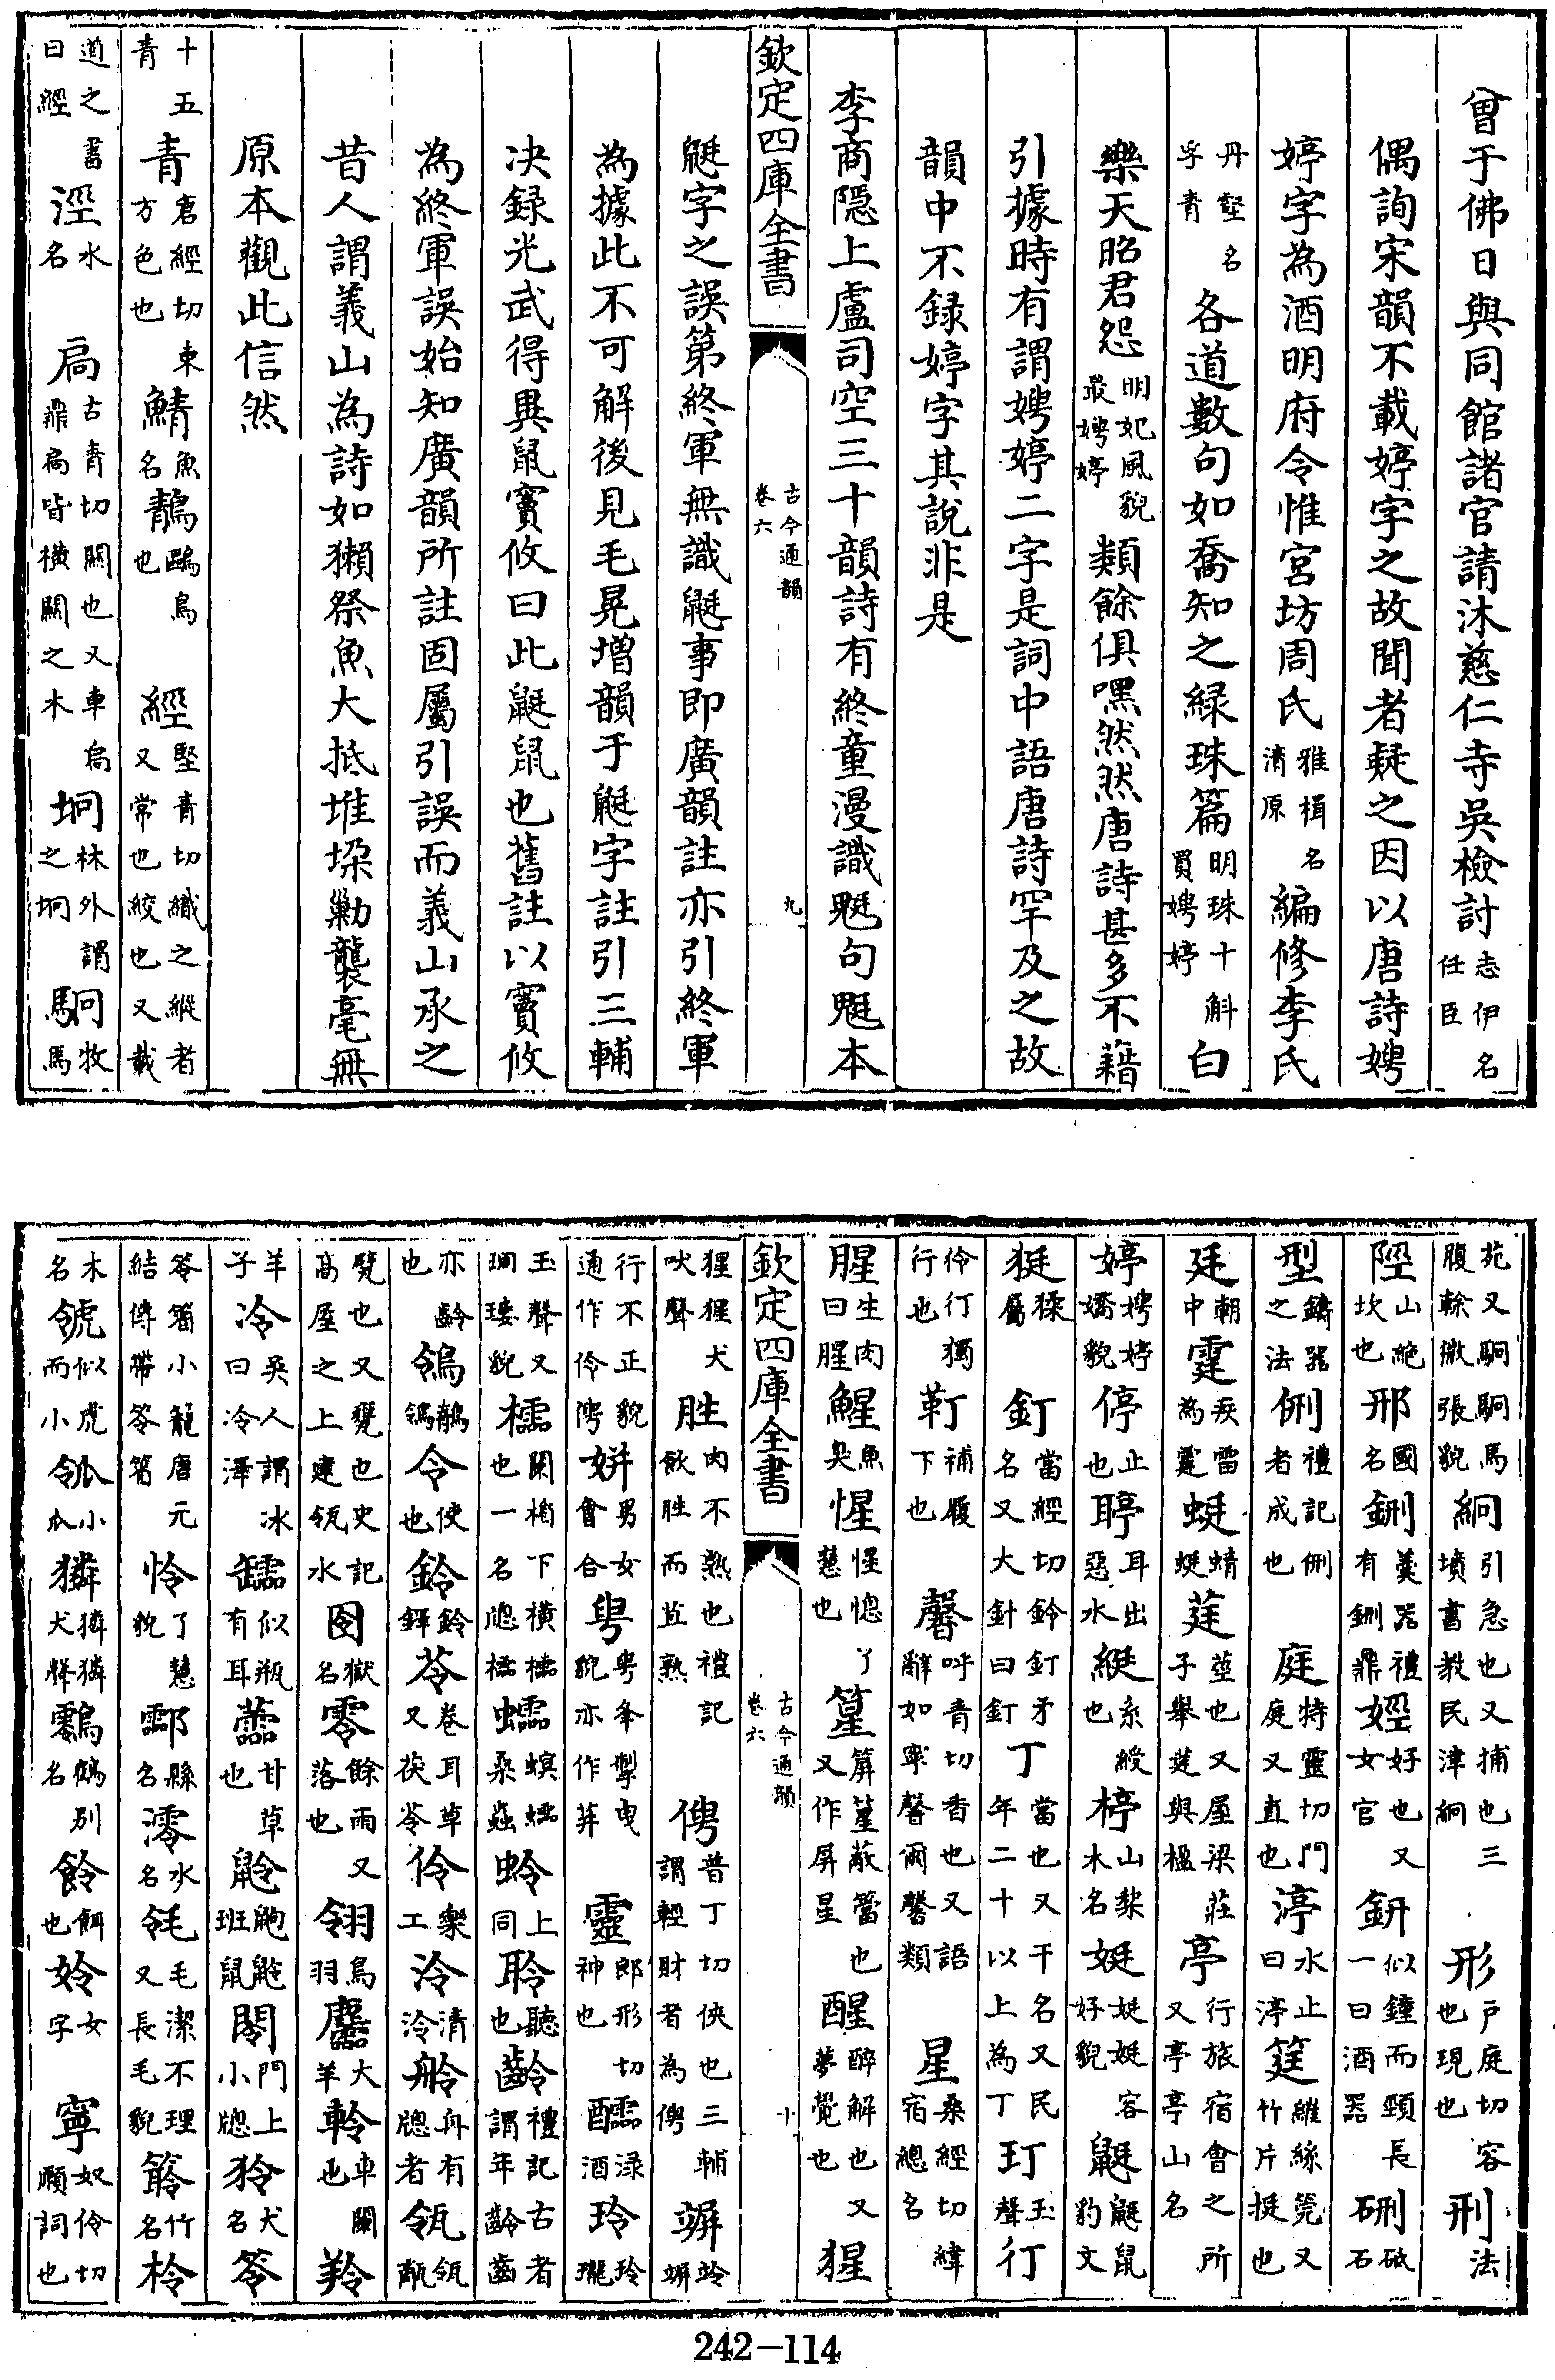 曾于佛日與同館諸官請沐慈仁寺吳檢討志伊名任臣
偶詢宋韻不載婷字之故聞者疑之因以唐詩娉
婷字為酒明府令惟宮坊周氏雅楫名清原編修李氏
丹壑名孚青各道數句如喬知之緑珠篇明珠十斛買娉婷白
樂天昭君怨明妃風貌最娉婷類餘俱嘿然然唐詩甚多不藉
引據時有謂娉婷二字是詞中語唐詩罕及之故
韻中不録婷字其說非是
李商隱上盧司空三十韻詩有終童漫識鼮句鼮本
欽定四庫全書
古今通韻
卷六
九
鼮字之誤第終軍無識鼮事即廣韻註亦引終軍
為據此不可解後見毛晃增韻于鼮字註引三輔
决録光武得異鼠竇攸曰此鼮鼠也舊註以竇攸
為終軍誤始知廣韻所註固屬引誤而義山承之
昔人謂義山為詩如獺祭魚大抵堆垜勦襲毫無
原本觀此信然
十五青青倉經切東方色也鯖魚名鶄鶄鳥也經堅青切織之縱者又常也絞也又載
道之書曰經涇水名扃古青切關也又車扃鼎扃皆橫關之木坰林外謂之坰駉牧馬
苑又駉駉馬腹榦微張貌絅引急也又捕也三墳書教民津絅形戶庭切容也現也刑法
陘山絶坎也邢國名鉶羹器禮有鉶鼎娙好也又女官鈃似鐘而頸長一曰酒器硎砥石
型鑄器之法侀禮記侀者成也庭特靈切門庭又直也渟水止曰渟筳維絲筦又竹片挺也
廷朝中霆疾雷為霆蜓蜻蜓莛莖也又屋梁莊子舉莛與楹亭行旅宿會之所又亭亭山名
婷娉婷嬌貌停止也聤耳出惡水綎系綬也楟山棃木名娗娗娗容好貌鼮鼮鼠豹文
狿猱屬釘當經切鈴釘矛名又大針曰釘丁當也又干名又民年二十以上為丁玎玉聲行
伶仃獨行也靪補履下也馨呼青切香也又語辭如寧馨爾馨類星桑經切緯宿總名
腥生肉曰腥鯹魚臭惺惺憁慧也丫篂屏篂蔽簹也又作屏星醒醉解也又夢覺也猩
欽定四庫全書
古今通韻
卷六
十
猩猩犬吠聲胜肉不熟也禮記飲胜而苴熟俜普丁切俠也三輔謂輕財者為俜竮竛竮
行不正貌通作伶俜姘男女會合甹甹夆掣曳貌亦作荓靈郎形切神也醽淥酒玲玲瓏
玉聲又瓓瓄貌櫺闌楯下橫也一名牎櫺蠕螟蠕桑蟲蛉上同聆聽也齡禮記古者謂年齡齒
亦齡也鴒鶺鴒令使也鈴鈴鐸苓卷耳草又茯苓伶樂工泠清泠舲舟有牎者瓴瓴甋
甓也又甕也史記高屋之上建瓴水囹獄名零餘雨又落也翎鳥羽麢大羊軨車闌也羚
羊子泠吳人謂冰曰泠澤䍅似瓶有耳蘦甘草也鼢鼩鼢班鼠閝門上小牎狑犬名笭
笭箵小籠唐元結傳帶笭箵怜了慧貌酃縣名澪水名毢毛潔不理又長毛貌笭竹名柃
木名䖋似虎而小瓝小瓜獜獜獜犬聲鸰鶴別名餎餌也姈女字寧奴伶切願詞也
242-114